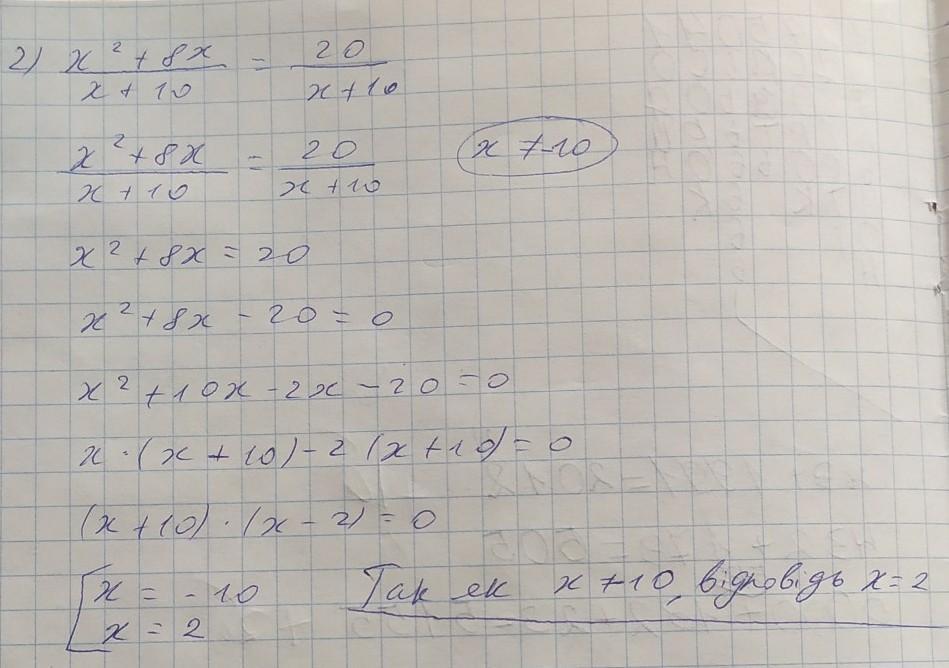 2) x² + 8x / x + 10 = 20 / x + 10
x² + 8x / x + 10 = 20 / x + 10 x ≠ -10
x² + 8x = 20
x² + 8x - 20 = 0
x² + 10x - 2x - 20 = 0
x · (x + 10) - 2 (x + 10) = 0
(x + 10) · (x - 2) = 0
[ x = - 10
x = 2
Так як x ≠ 10, відповідь x = 2